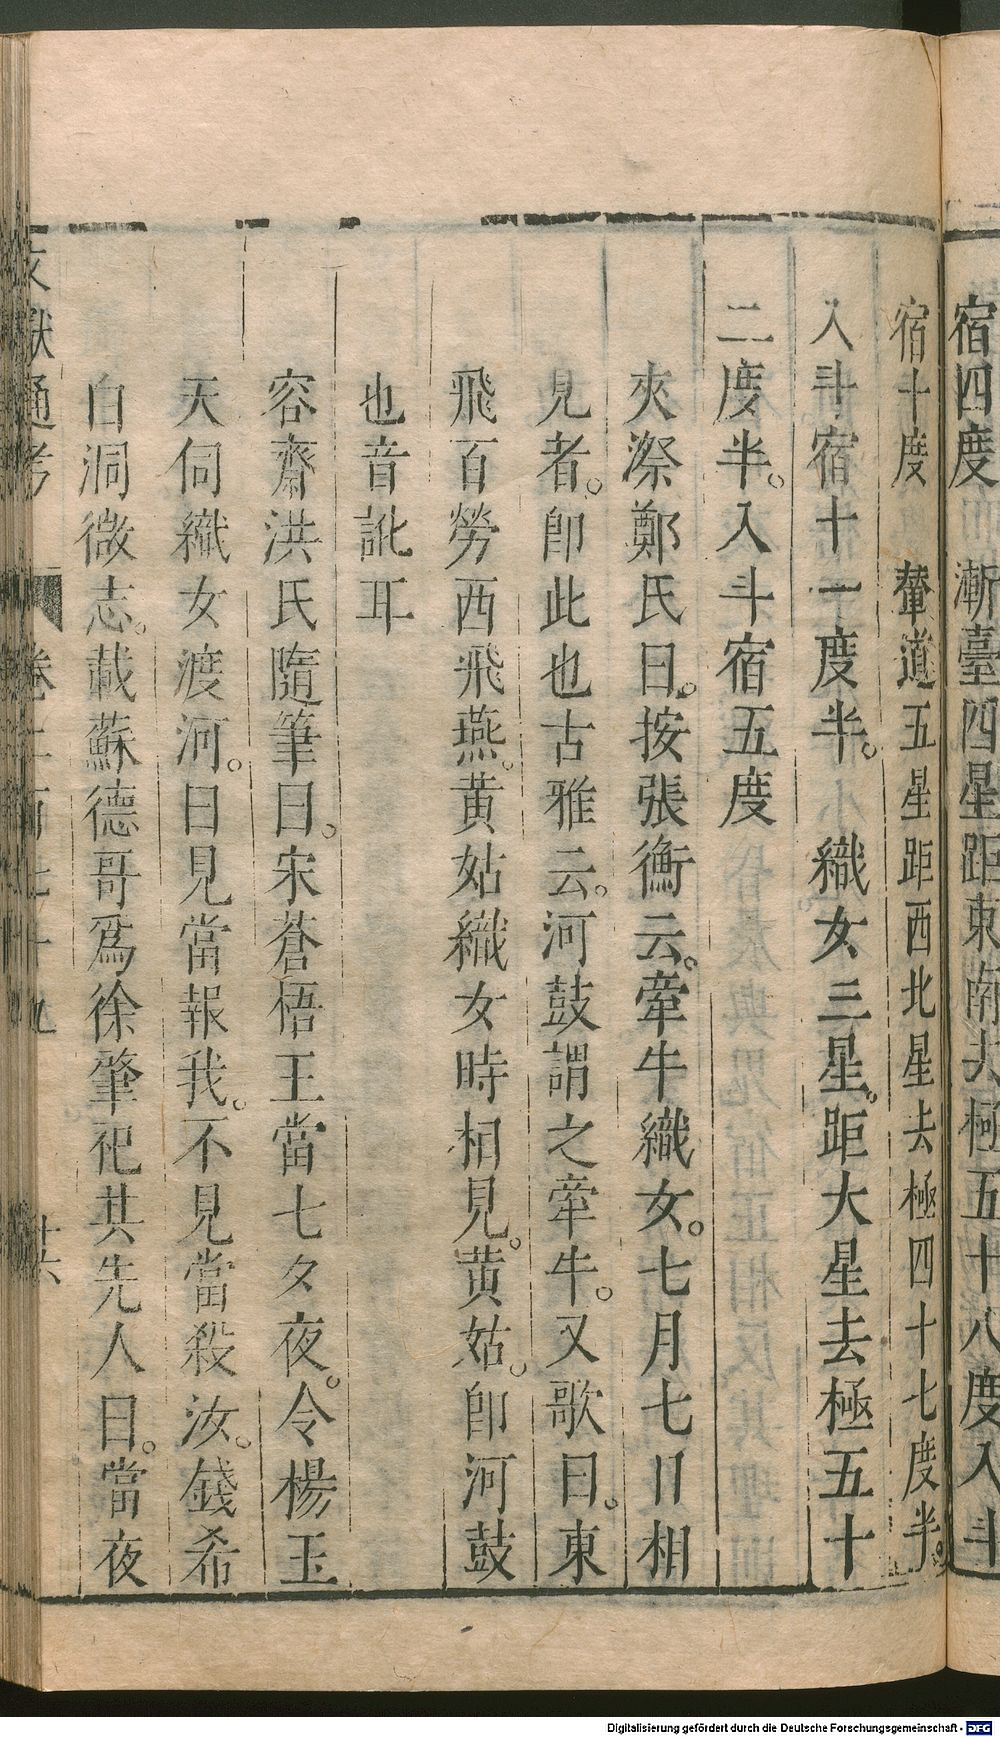 宿四度　漸臺四星距東南去極五十八度入斗
宿十度　輦道五星距西北星去極四十七度半。
入斗宿十一度半。　織女三星。距大星去極五十
二度半。入斗宿五度
夾漈鄭氏曰。按張衡云。牽牛織女。七月七日相
見者。卽此也古雅云。河鼓謂之牽牛。又歌曰。東
飛百勞西飛燕。黃姑織女時相見。黃姑。卽河鼓
也音訛耳
容齋洪氏隨筆曰。宋蒼梧王當七夕夜。令楊玉
天伺織女渡河。曰見當報我。不見當殺汝。錢希
白洞微志。載蘇德哥爲徐肇祀其先人曰。當夜
文獻通考　卷二百七十九　廿六
Digitalisierung gefördert durch die Deutsche Forschungsgemeinschaft - DFG